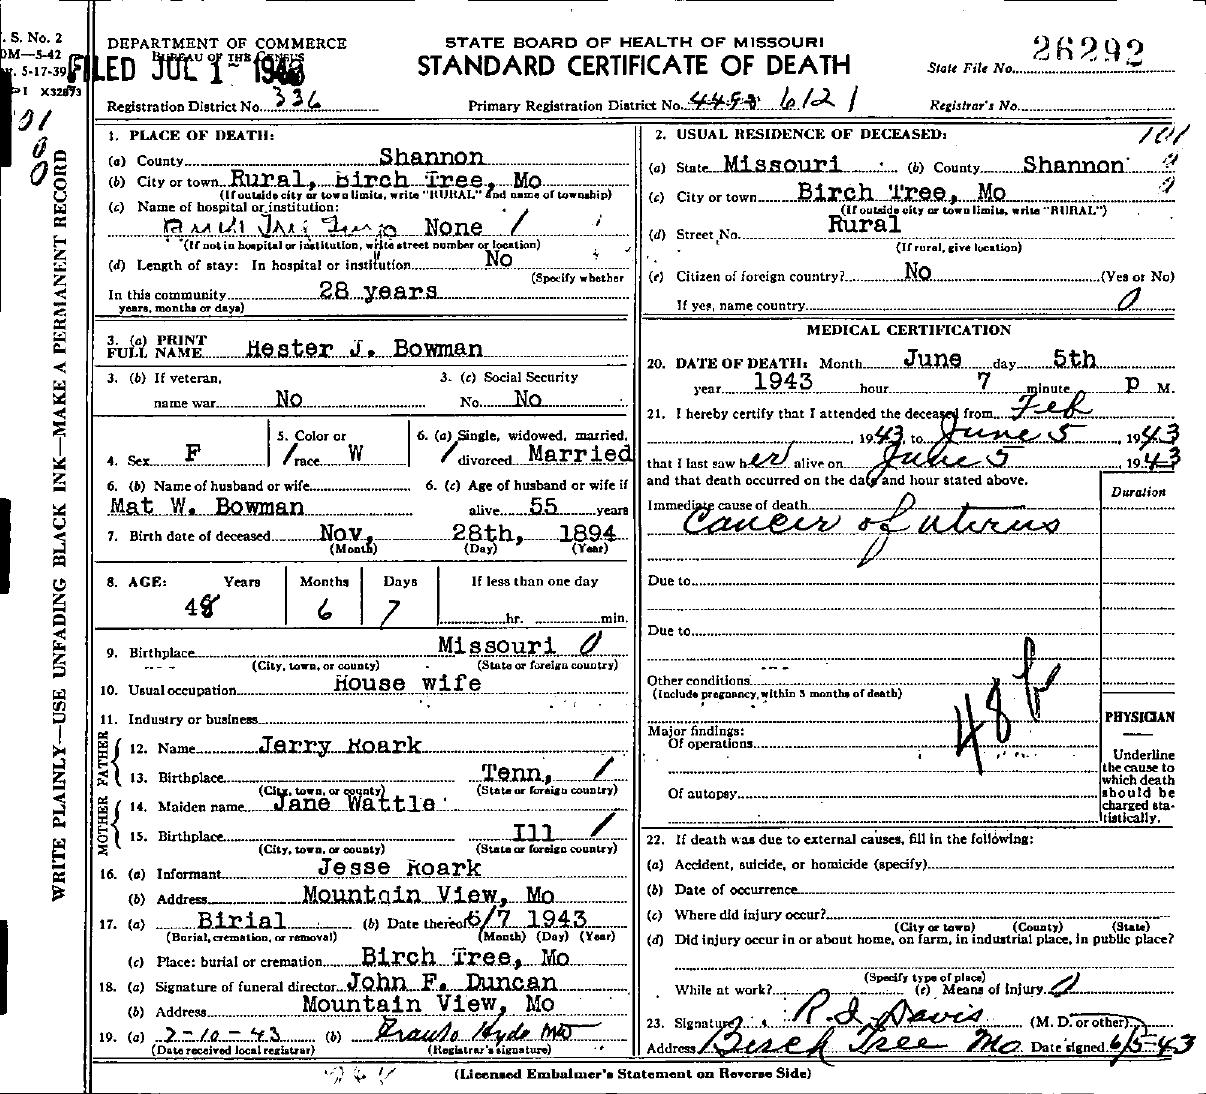 V. S. No. 2
DEPARTMENT OF COMMERCE
BUREAU OF THE CENSUS
STATE BOARD OF HEALTH OF MISSOURI
STANDARD CERTIFICATE OF DEATH
5-17-39
FILED JUL 1
X32873
State File No. 26292
Registration District No. 336
Primary Registration District No. 6121
Registrar's No.
WRITE PLAINLY—USE UNFADING BLACK INK—MAKE A PERMANENT RECORD
1. PLACE OF DEATH:
(a) County Shannon
(b) City or town Rural, Birch Tree, Mo
(If outside city or town limits, write "RURAL" and name of township)
(c) Name of hospital or institution:
None
(If not in hospital or institution, write street number or location)
(d) Length of stay: In hospital or institution No
(Specify whether
In this community 28 years
years, months or days)
3. (a) PRINT FULL NAME Hester J. Bowman
3. (b) If veteran, name war No
3. (c) Social Security No. No
4. Sex F
5. Color or race W
6. (a) Single, widowed, married, divorced Married
6. (b) Name of husband or wife Mat W. Bowman
6. (c) Age of husband or wife if alive 55 years
7. Birth date of deceased Nov, 28th, 1894
(Month) (Day) (Year)
8. AGE: Years Months Days If less than one day
48 6 7 hr. min.
9. Birthplace Missouri 0
(City, town, or county) (State or foreign country)
10. Usual occupation House wife
11. Industry or business
FATHER
12. Name Jerry Roark
13. Birthplace Tenn, /
(City, town, or county) (State or foreign country)
MOTHER
14. Maiden name Jane Wattle
15. Birthplace Ill /
(City, town, or county) (State or foreign country)
16. (a) Informant Jesse Roark
(b) Address Mountain View, Mo
17. (a) Birial (b) Date thereof 6/7 1943
(Burial, cremation, or removal) (Month) (Day) (Year)
(c) Place: burial or cremation Birch Tree, Mo
18. (a) Signature of funeral director John F. Duncan
(b) Address Mountain View, Mo
19. (a) 7-10-43 (b) Hyde MD
(Date received local registrar) (Registrar's signature)
2. USUAL RESIDENCE OF DECEASED:
101
(a) State Missouri (b) County Shannon
(c) City or town Birch Tree, Mo
(If outside city or town limits, write "RURAL")
(d) Street No. Rural
(If rural, give location)
(e) Citizen of foreign country? No (Yes or No)
If yes, name country 0
MEDICAL CERTIFICATION
20. DATE OF DEATH: Month June day 5th
year 1943 hour 7 minute P M.
21. I hereby certify that I attended the deceased from Feb
1943 to June 5, 1943
that I last saw her alive on June 5 1943
and that death occurred on the date and hour stated above.
Duration
Immediate cause of death
Cancer of uterus
Due to
Due to
Other conditions
(Include pregnancy within 3 months of death)
48 b
Major findings:
Of operations
Of autopsy
PHYSICIAN
Underline
the cause to
which death
should be
charged sta-
tistically.
22. If death was due to external causes, fill in the following:
(a) Accident, suicide, or homicide (specify)
(b) Date of occurrence
(c) Where did injury occur?
(City or town) (County) (State)
(d) Did injury occur in or about home, on farm, in industrial place, in public place?
(Specify type of place)
While at work? (e) Means of Injury 0
23. Signature R. I. Davis (M. D. or other)
Address Birch Tree Mo Date signed 6/5-43
(Licensed Embalmer's Statement on Reverse Side)